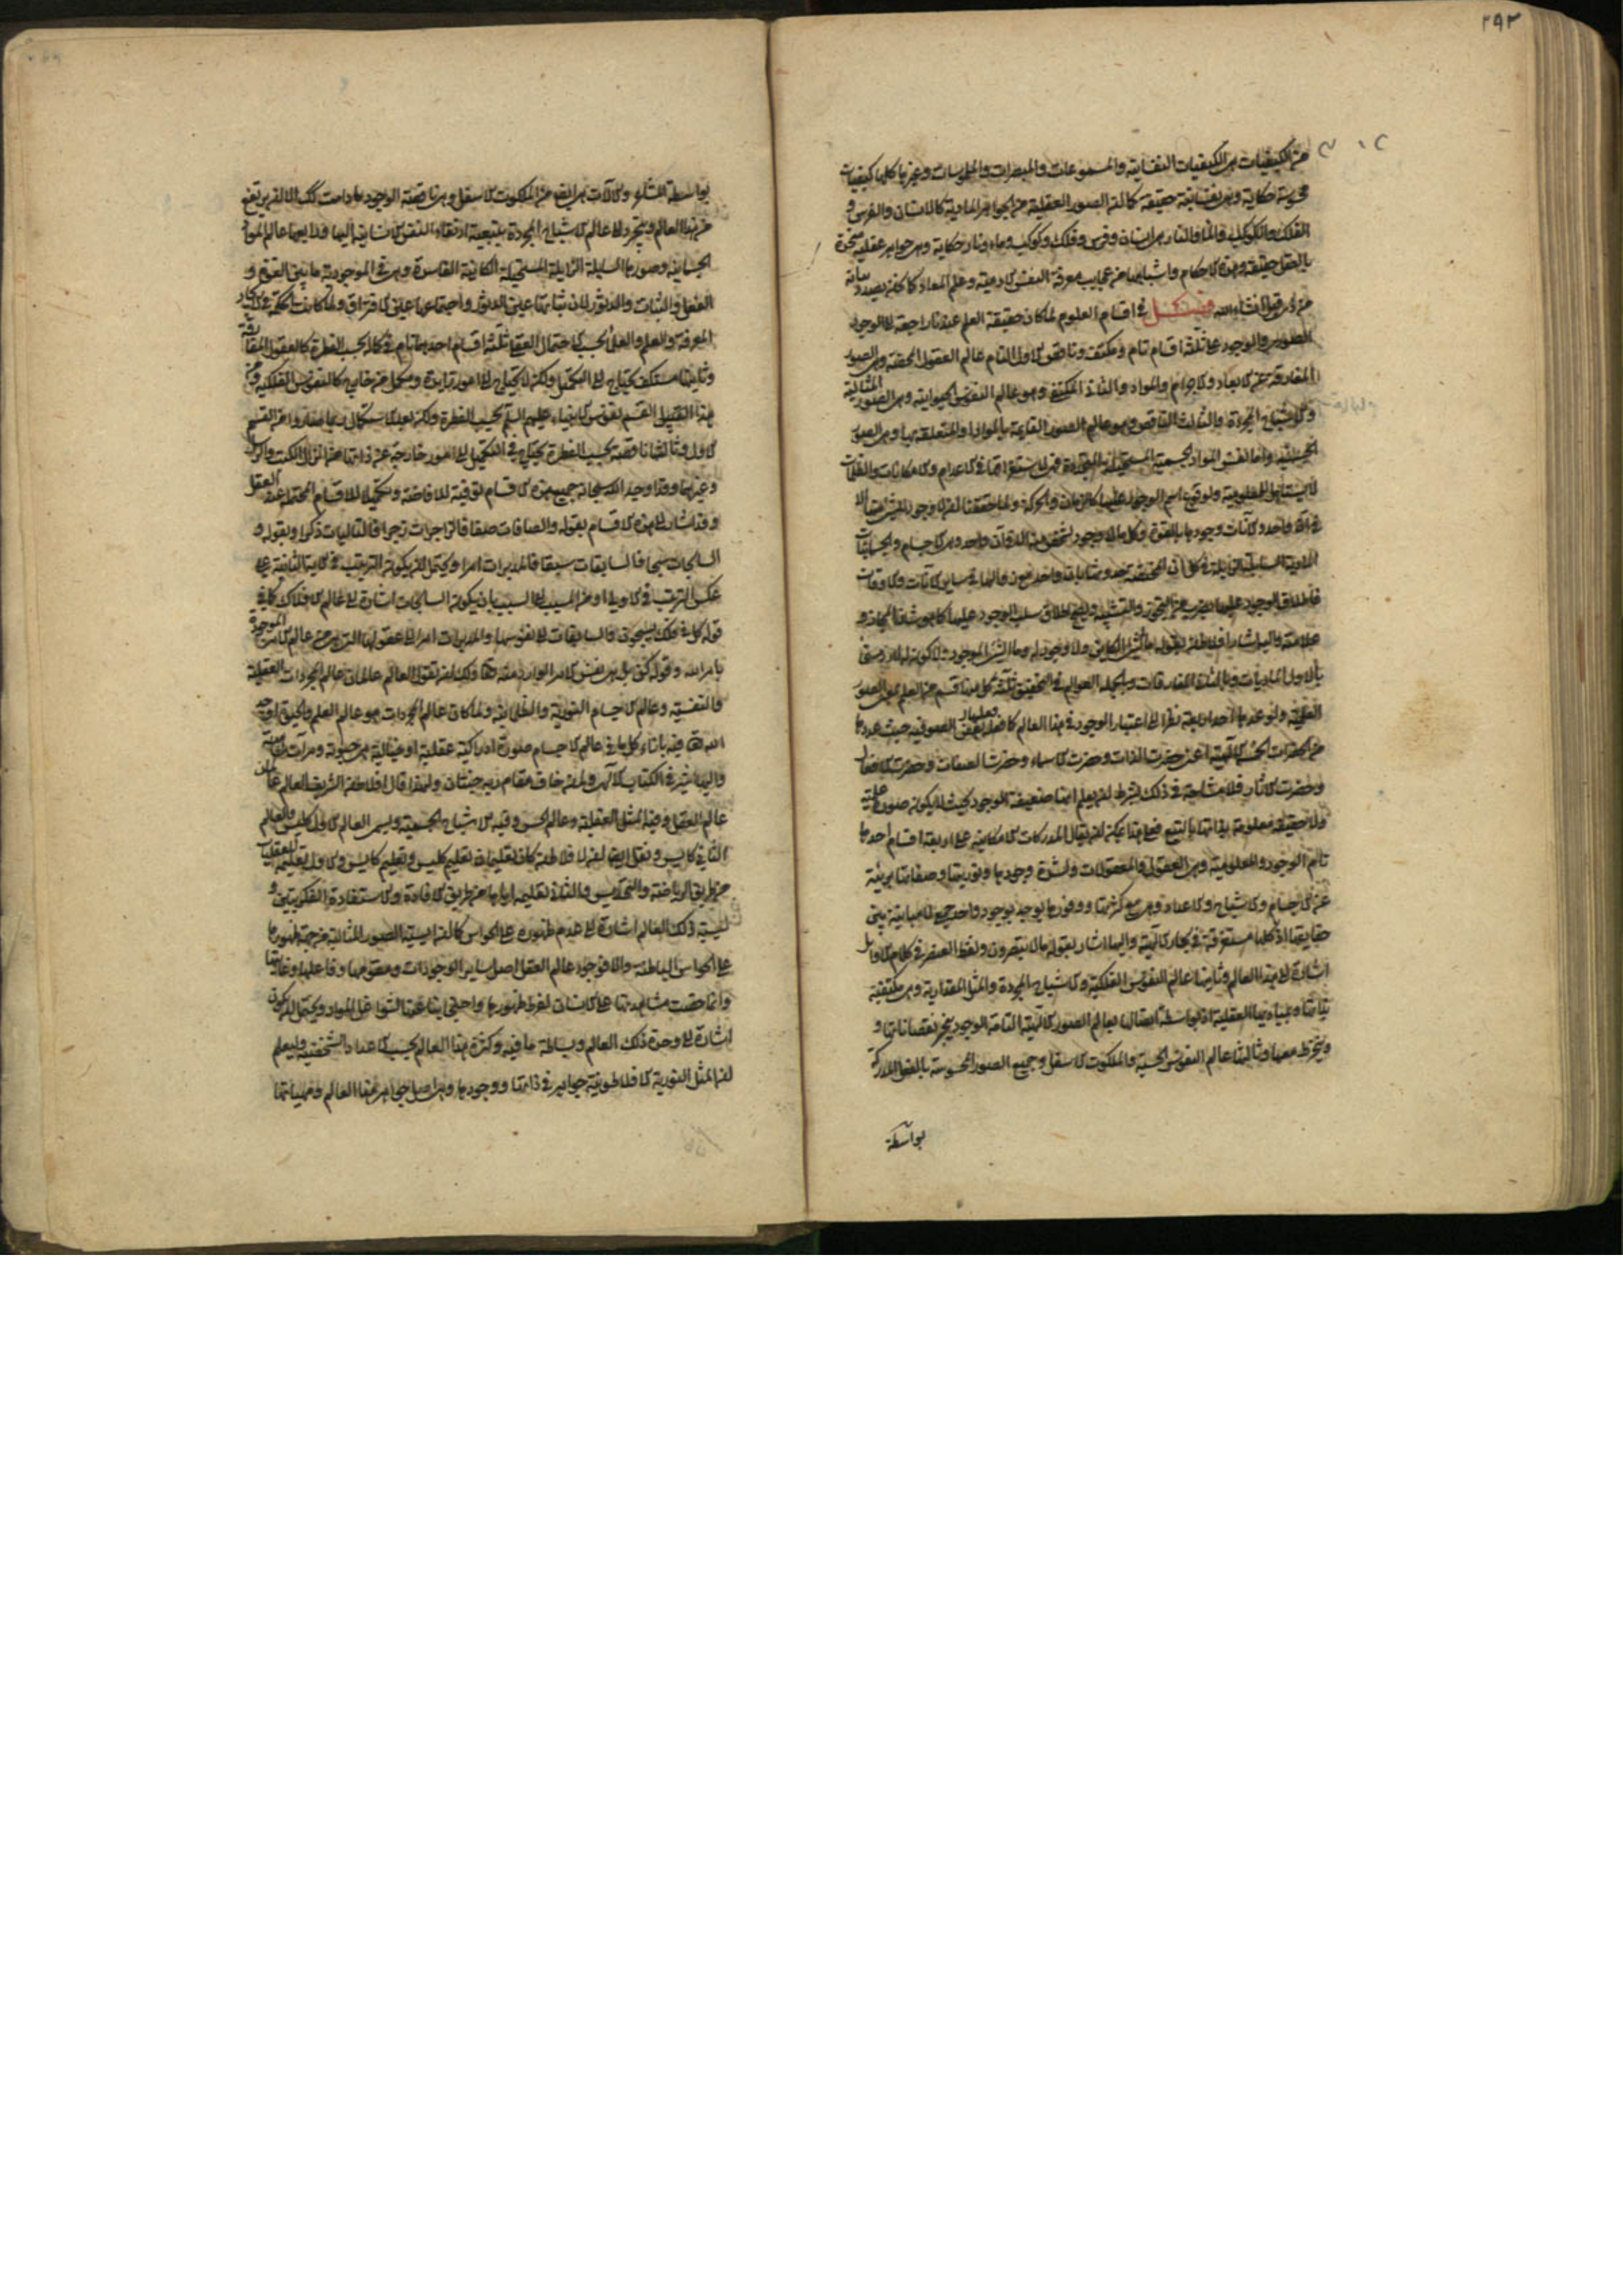 ٢٩٢
من الكيفيات هي الكيفيات النفسانية والمسموعات والمبصرات والملموسات وغيرها كلها كيفيات
محسوسة حكاية وهي نفسانية حقيقة كما ان الصور العقلية من الجواهر المادية كالانسان والفرس و
الفلك والكوكب والماء والنار هي انسان وفرس وفلك وكوكب وماء ونار حكاية وهي جواهر عقلية متحدة
بالعقل حقيقة وهذه الاحكام واشباهها من عجايب معرفة النفس الادمية وعلم المعاد كما نحن بصدد بيانه
من ذي قبل انشاء الله فصل في اقسام العلوم لما كان حقيقة العلم عندنا راجعة الى الوجود
الصوري والوجود على ثلثة اقسام تام ومكتف وناقص الاول التام عالم العقول المحضة وهي الصور
المفارقة عن الابعاد والاجرام والمواد والثاني المكتفي وهو عالم النفوس الحيوانية وهي الصور المثالية
والاشباح المجردة والثالث الناقص وهو عالم الصور القائمة بالمواد والمتعلقة بها وهي الصور
الحسية واما نفس المواد الجسمية المستحيلة المتجددة فهي لاستغراقها في الاعدام والامكانات والظلمات
لا يستاهل للمعلومية ولوقوع اسم الوجود عليها كالزمان والحركة ولما حققنا ان لا وجود لشيء منها الا
في آن واحد والآنات وجودها بالقوة وكل ما لا وجود لشخص منه الا في آن واحد وهي الاجسام والجسمانيات
المادية السايلة الزايلة في كل آن
فاطلاق الوجود عليها بضرب من التجوز والتشبيه ويصح اطلاق سلب الوجود عليها كما هو شان المجاز و
علامته واليه اشار افلاطن بقوله ما الشيء الكاين ولا وجود له وما الشيء الموجود ولا كون له اراد
بالاول الماديات وبالثاني المفارقات وبالجملة العوالم في التحقيق ثلثة كل منها قسم من العلم
العلمية ولو عد
من الحضرات الخمس الالهية اعني حضرت الذات وحضرت الاسماء وحضرت الصفات وحضرت الافعال
وحضرت الاثار فلا مشاحة في ذلك بشرط ان يعلم انها ضعيفة الوجود بحيث لا يكون صورة علمية
ولا حقيقة معلومة بذاتها بل بالتبع فعلى هذا يمكن ان يقال المدركات الامكانية على اربعة اقسام احدها
تام الوجود والمعلومية وهي العقول والمعقولات ولشدة وجودها ونوريتها وصفائها بريئة
عن الاجسام والاشباح والاعداد وهي مع كثرتها ووفورها يوجد بوجود واحد جمعي لا مباينة بين
حقايقها اذ كلها مستغرقة في بحار الالهية واليها اشار بقوله ما لا تبصرون ولفظ العنصر في كلام الاوايل
اشارة الى هذا العالم وثانيها عالم النفوس الفلكية والاشباح المجردة والمثل المقدارية وهي مكتفية
بذاتها وبمباديها العقلية اذ بواسطة اتصالها بعالم الصور الالهية التامة الوجود ينجبر نقصاناتها و
وينخرط معها وثالثها عالم النفوس الحسية والملكوت الاسفل وجميع الصور المحسوسة بالفعل المدركة
بواسطة
بواسطة المشاعر والآلات هي ايض من الملكوت الاسفل وهي ناقصة الوجود ما دامت كك الا ان يرتفع
من هذا العالم ويتجرد الى عالم الاشباح المجردة بتبعية ارتقاء النفس الانسانية اليها ورابعها عالم المواد
الجسمانية وصورها السايلة الزايلة المستحيلة الكائنة الفاسدة وهي في الموجودية ما بين القوة و
الفعل والثبات والدثور لان ثباتها عين الدثور واجتماعها عين الافتراق ولما كانت الحكمة في الايجاد
المعرفة والعلم والعلماء بحسب الاحتمال العقلي ثلثة اقسام احدها تام في كماله بحسب الفطرة كالعقول المفارقة
وثانيها مستكف يحتاج الى التكميل ولكن لا يحتاج الى امور زايدة ومكمل من خارج كالنفوس الفلكية ومن
هذا القبيل القسم نفوس الانبياء عليهم السلم بحسب الفطرة ولكن بعد الاستكمال ربما صاروا من القسم
الاول وثالثها ناقصة بحسب الفطرة يحتاج في التكميل الى امور خارجة عن ذاتها من انزال الكتب والرسل
وغيرهما وقد اوجد الله سبحانه جميع هذه الاقسام توفية للافاضة وتكميلا للاقسام المحتملة عند العقل
وقد اشار الى هذه الاقسام بقوله والصافات صفا فالزاجرات زجرا فالتاليات ذكرا وبقوله و
السابحات سبحا فالسابقات سبقا فالمدبرات امرا ويحتمل ان يكون الترتيب في الاية الثانية على
عكس الترتيب في الاولى اي من المسبب الى السبب بان يكون السابحات اشارة الى عالم الافلاك كما في
قوله كل في فلك يسبحون والسابقات الى نفوسها والمدبرات امرا الى عقولها التي هي من عالم الامر الموجودة
بامر الله وقوله كن بل هي نفس الامر الوارد منه تعالى ولك ان تقول العالم عالمان عالم المجردات العقلية
والنفسية وعالم الاجسام النورية والظلمانية ولما كان عالم المجردات هو عالم العلم والحيوة اوجد
الله تعالى فيه بازاء كل ما في عالم الاجسام صورة ادراكية عقلية او خيالية هي حيوته ومرآت
واليها اشير في الكتاب الالهي ولمن خاف مقام ربه جنتان ولهذا قال افلاطن الشريف العالم عالمان
عالم العقل وفيه المثل العقلية وعالم الحس وفيه الاشباح الحسية ويسمى العالم الاول كليس والعالم
الثاني كايس ونقل ايضا ان لافلاطن كان تعليمان تعليم كليس وتعليم كايس والاول تعليمه للعقليات
من طريق الرياضة والتحديس والثاني تعليمه اياها من طريق الافادة والاستفادة الفكريتين و
ليسية ذلك العالم اشارة الى عدم ظهوره على الحواس كما ان ايسية الصور المثالية من جهة ظهورها
على الحواس الباطنة والا فوجود عالم العقل اصل ساير الوجودات ومقومها وفاعلها وغايتها
وانما خفيت مشاهدتها على الانسان لفرط ظهورها واحتجابنا عنها لشواغل المواد ويحتمل ان يكون
اشارة الى وحدة ذلك العالم وبساطة ما فيه وكثرة هذا العالم بحسب الاعداد الشخصية وليعلم
ان المثل النورية الافلاطونية جواهر في ذاتها ووجودها وهي اصل جواهر هذا العالم ومهياتها